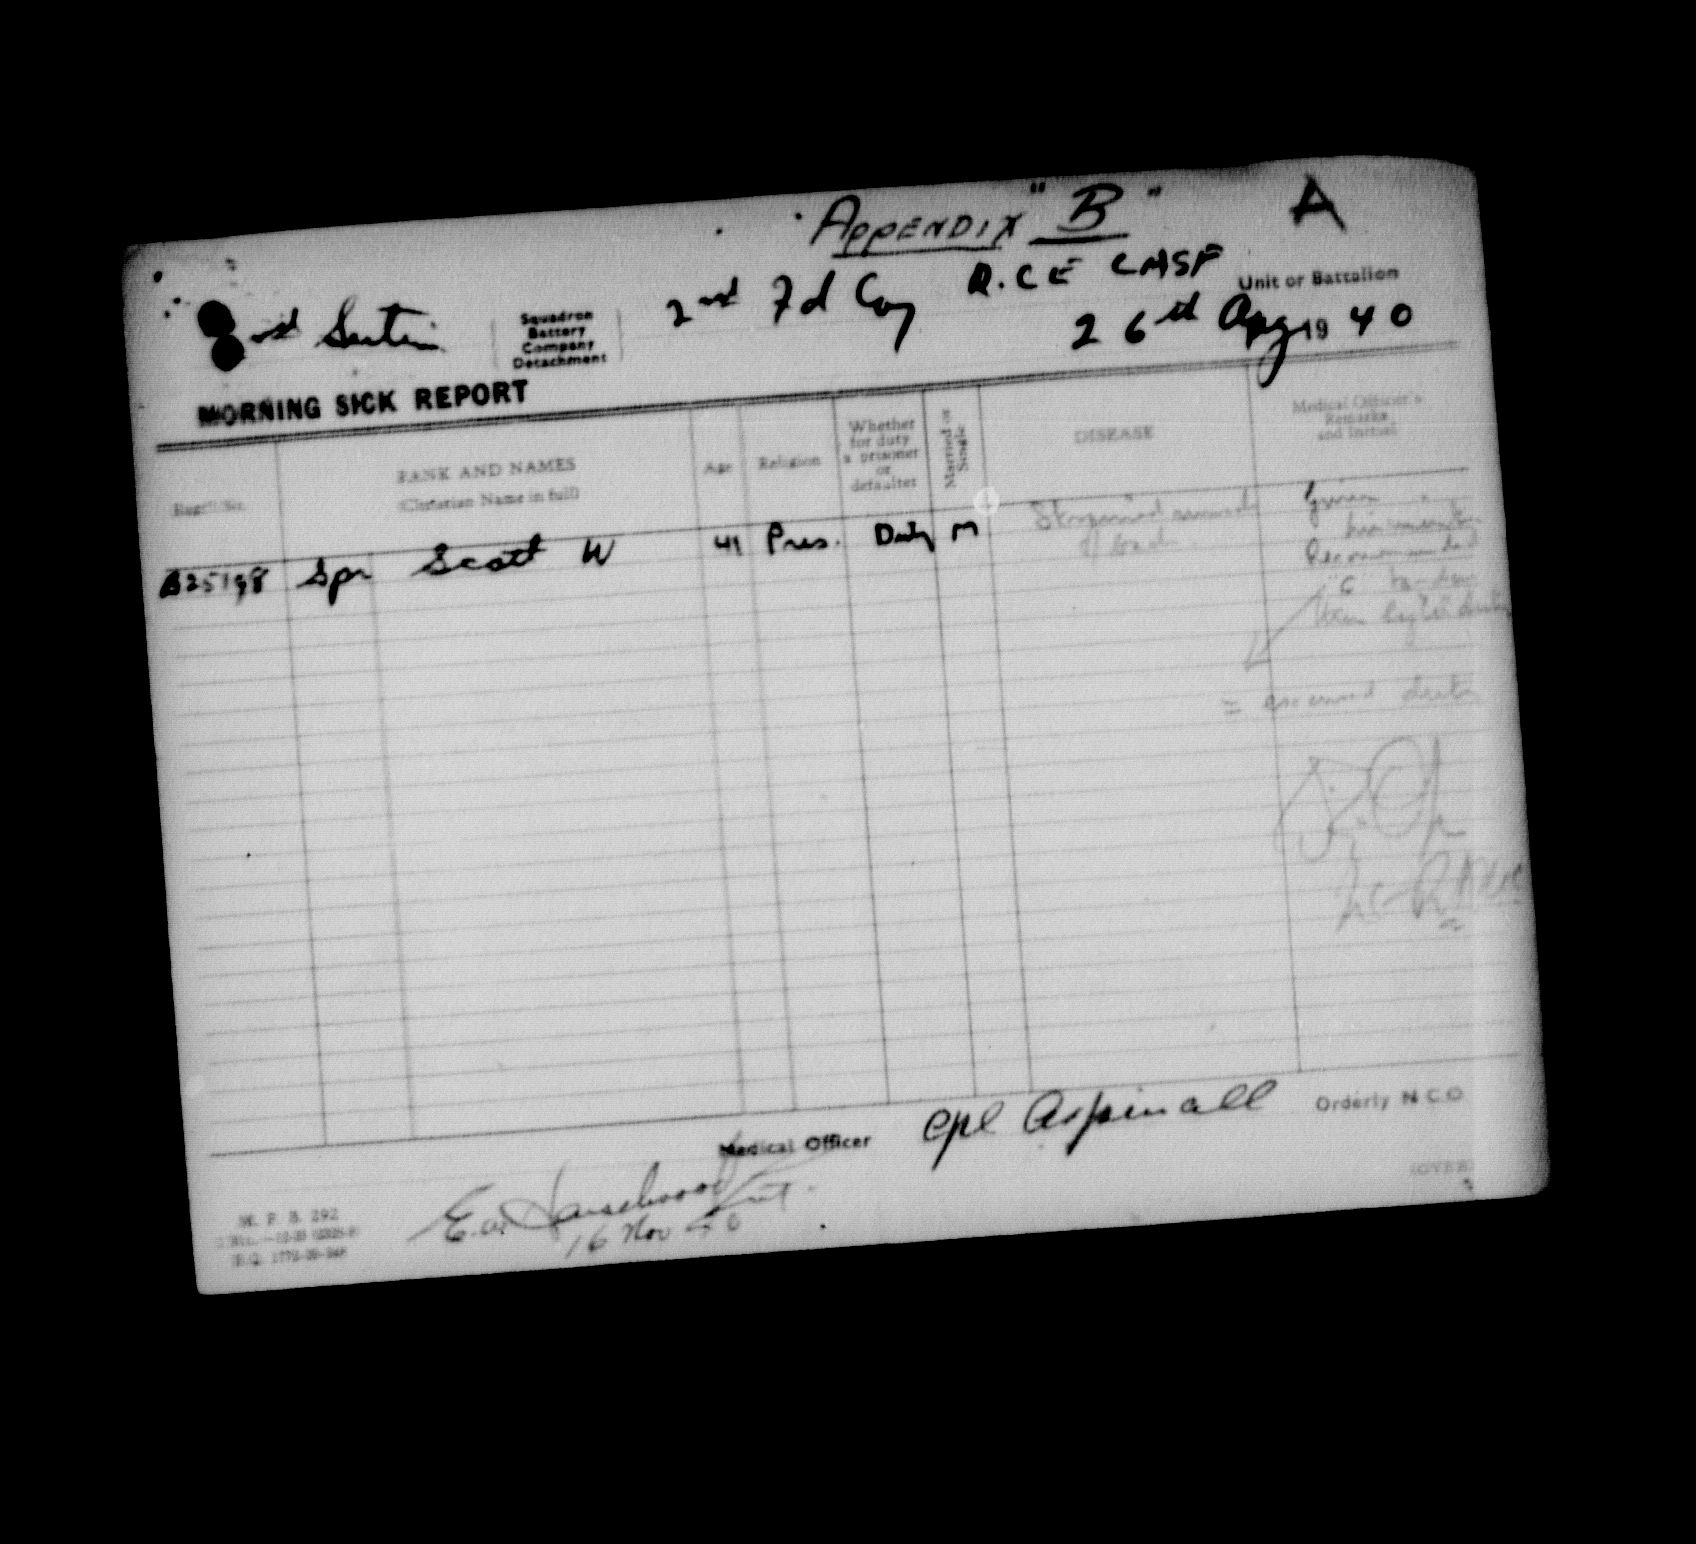 APPENDIX "B" A
nd Section
Squadron
Battery
Company
Detachment
2nd Fd Coy R.C.E CASF
Unit or Battalion
26th Aug 1940
MORNING SICK REPORT
Regt'l No.
RANK AND NAMES
(Christian Name in full)
Age
Religion
Whether
for duty
a prisoner
or
defaulter
Married or
Single
DISEASE
Medical Officer's
Remarks
and Initial
B25198 Spr Scott W 41 Pres. Duty M
of back
Given
liniment
Recommended
then light duty
= excused duty
Medical Officer
Cpl Aspinall
Orderly N.C.O.
E.W.
16 Nov 40
M. F. B. 292
H.Q. 1772-39-
(OVER)